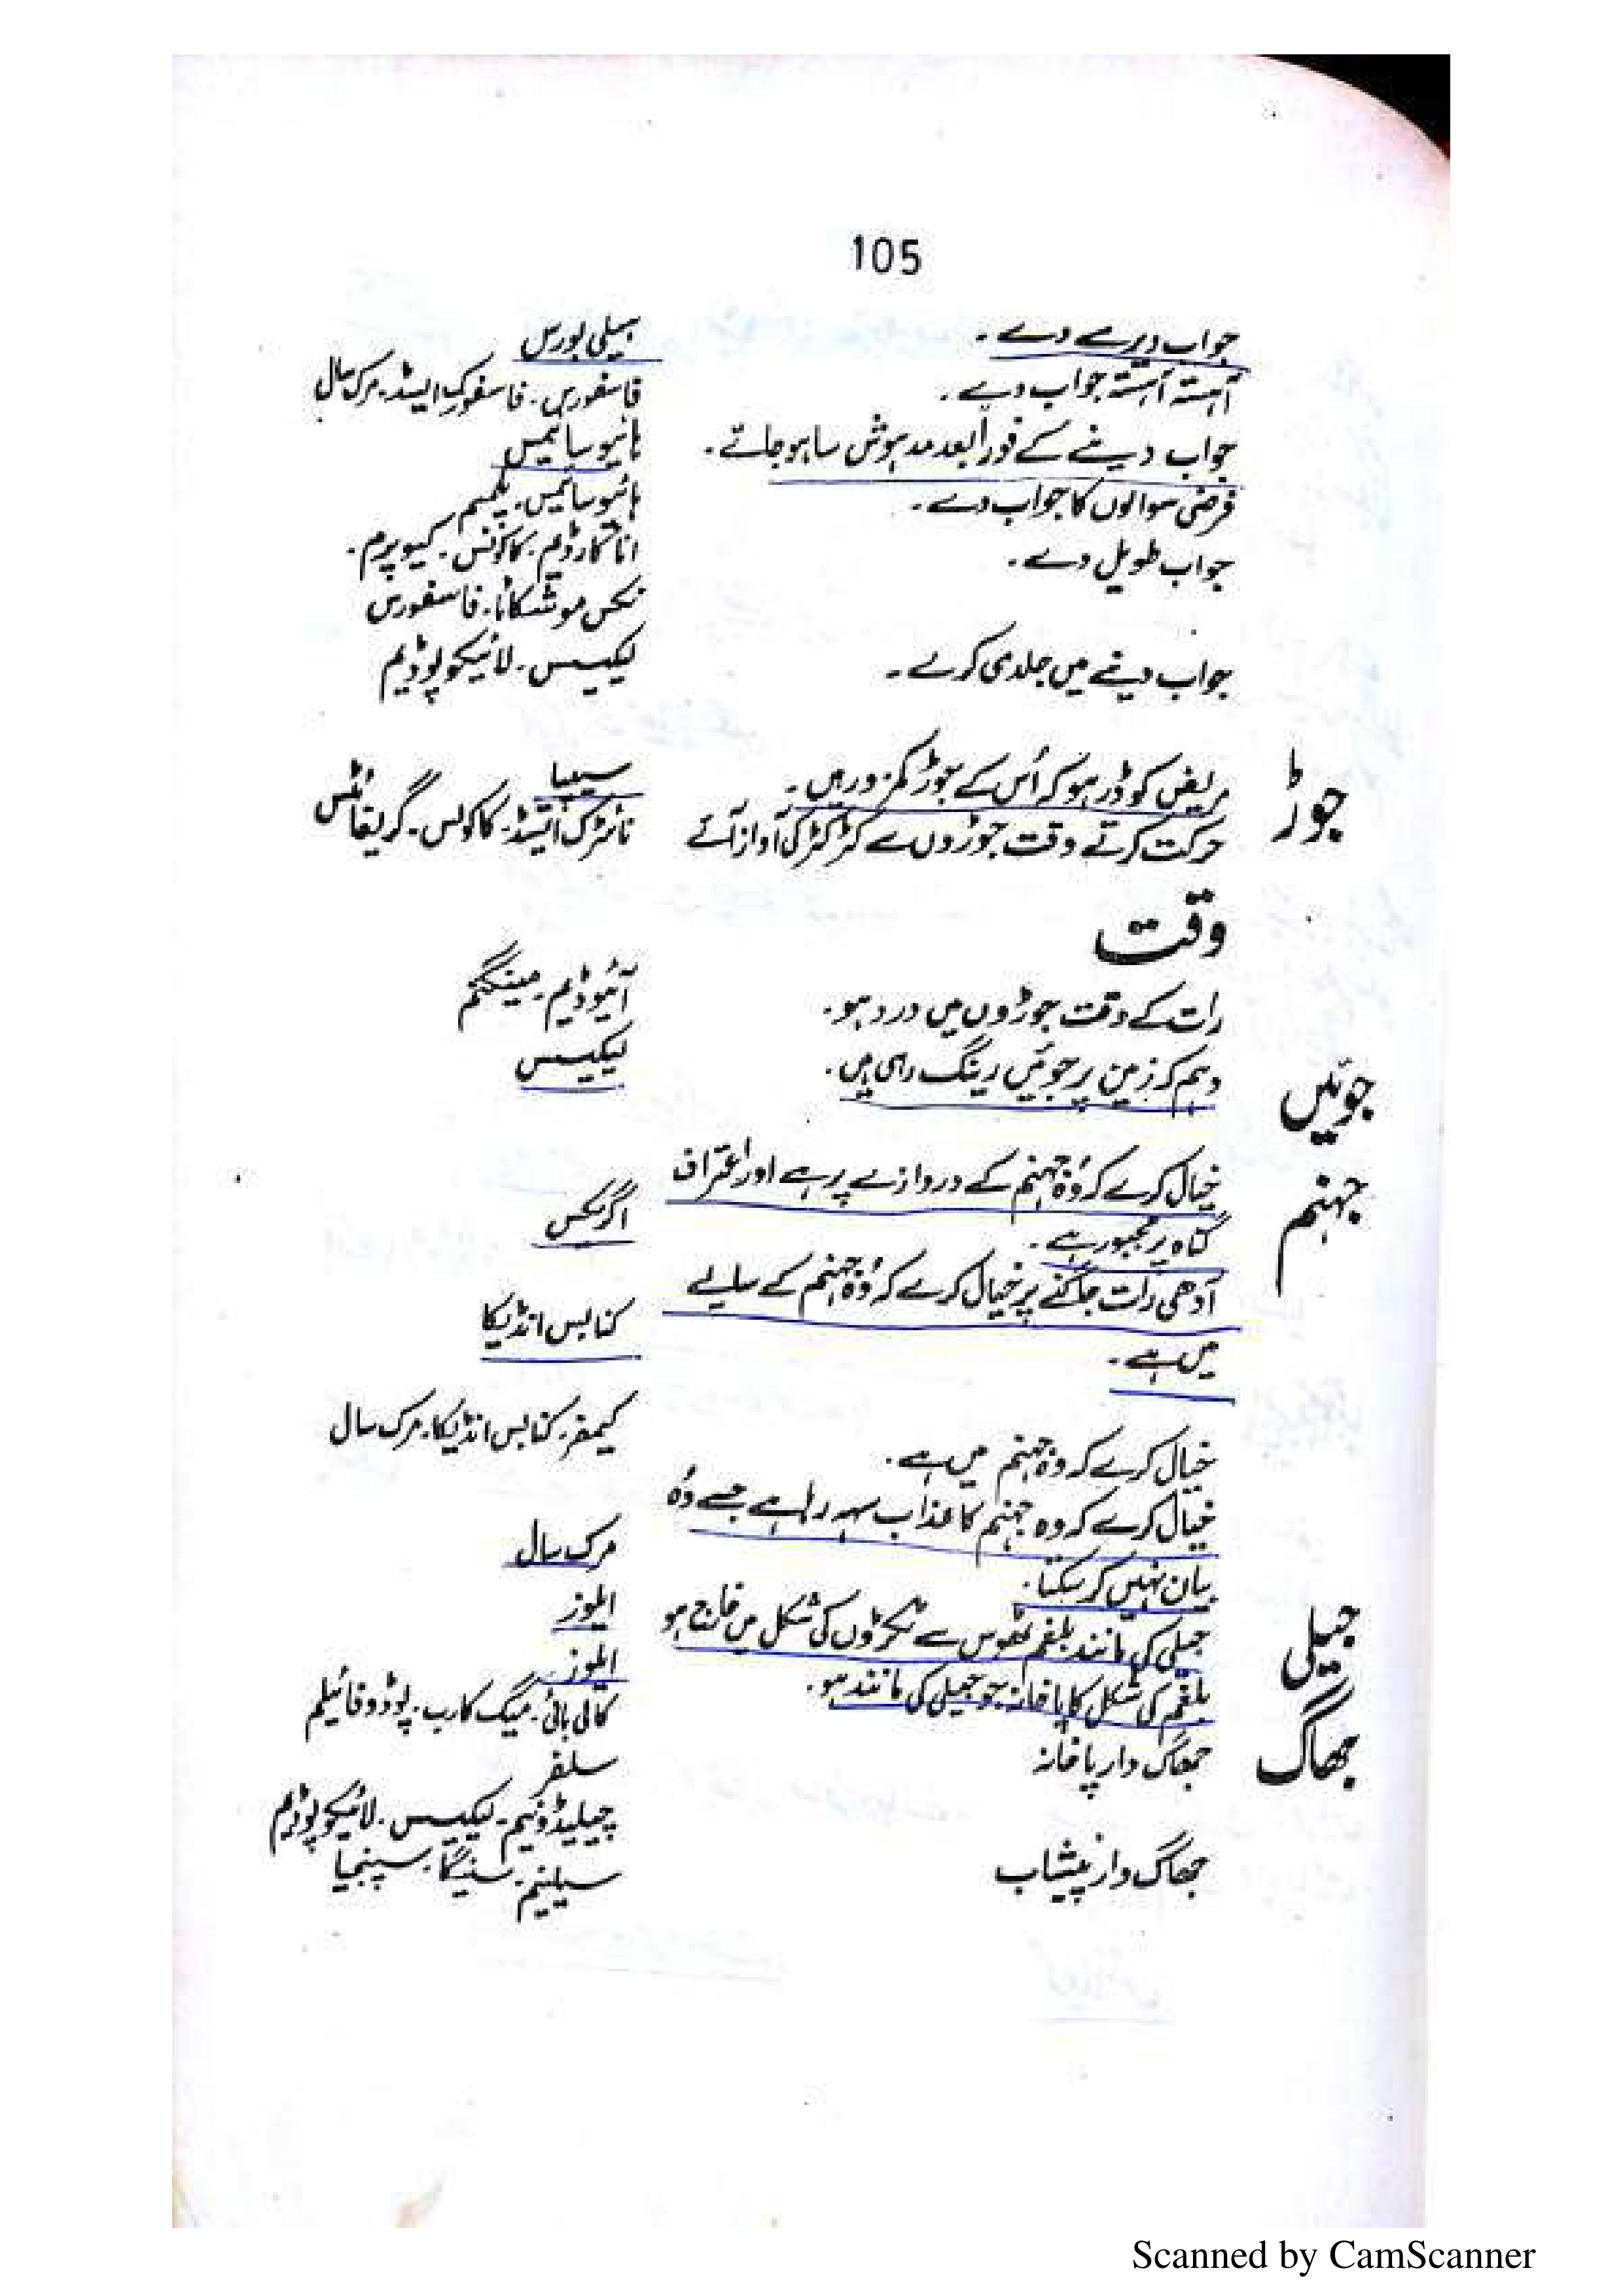 105
جواب دیر سے دے۔ ہیلی بورس
آہستہ آہستہ جواب دے۔ فاسفورس۔ فاسفورک ایسڈ۔ مرک سال
جواب دینے کے فوراً بعد مدہوش سا ہو جائے۔ ہائیوسائیمس
فرضی سوالوں کا جواب دے۔ ہائیوسائیمس۔ پلمبم
جواب طویل دے۔ اناکارڈیم۔ کاکولس۔ کیوپرم۔
نکس موشکاٹا۔ فاسفورس
جواب دینے میں جلدی کرے۔ لیکیسس۔ لائیکوپوڈیم
جوڑ مریض کو ڈر ہو کہ اُس کے جوڑ کمزور ہیں۔ سیپیا
حرکت کرتے وقت جوڑوں سے کڑ کڑ کی آواز آئے نائٹرک ایسڈ۔ کاکولس۔ گریفائٹس
وقت
رات کے وقت جوڑوں میں درد ہو۔ آئیوڈیم۔ مینگنم
جوئیں وہم کہ زمین پر جوئیں رینگ رہی ہیں۔ لیکیسس
جہنم خیال کرے کہ وُہ جہنم کے دروازے پر ہے اور اعتراف
گناہ پر مجبور ہے۔ اگریکس
آدھی رات جاگنے پر خیال کرے کہ وُہ جہنم کے سایے
میں ہے۔ کنابس انڈیکا
خیال کرے کہ وہ جہنم میں ہے۔ کیمفر۔ کنابس انڈیکا۔ مرک سال
خیال کرے کہ وہ جہنم کا عذاب سہہ رہا ہے جسے وُہ
بیان نہیں کر سکتا۔ مرک سال
جیلی جیلی کی مانند بلغم ٹھوس سے ٹکڑوں کی شکل میں خارج ہو ایلوز
بلغم کی شکل کا پاخانہ جو جیلی کی مانند ہو۔ ایلوز
جھاگ جھاگ دار پاخانہ کالی بائی۔ میگ کارب۔ پوڈوفائیلم
سلفر
جھاگ دار پیشاب چیلیڈونیم۔ لیکیسس۔ لائیکوپوڈیم
سیلینیم۔ سینیگا۔ سپنجیا
Scanned by CamScanner